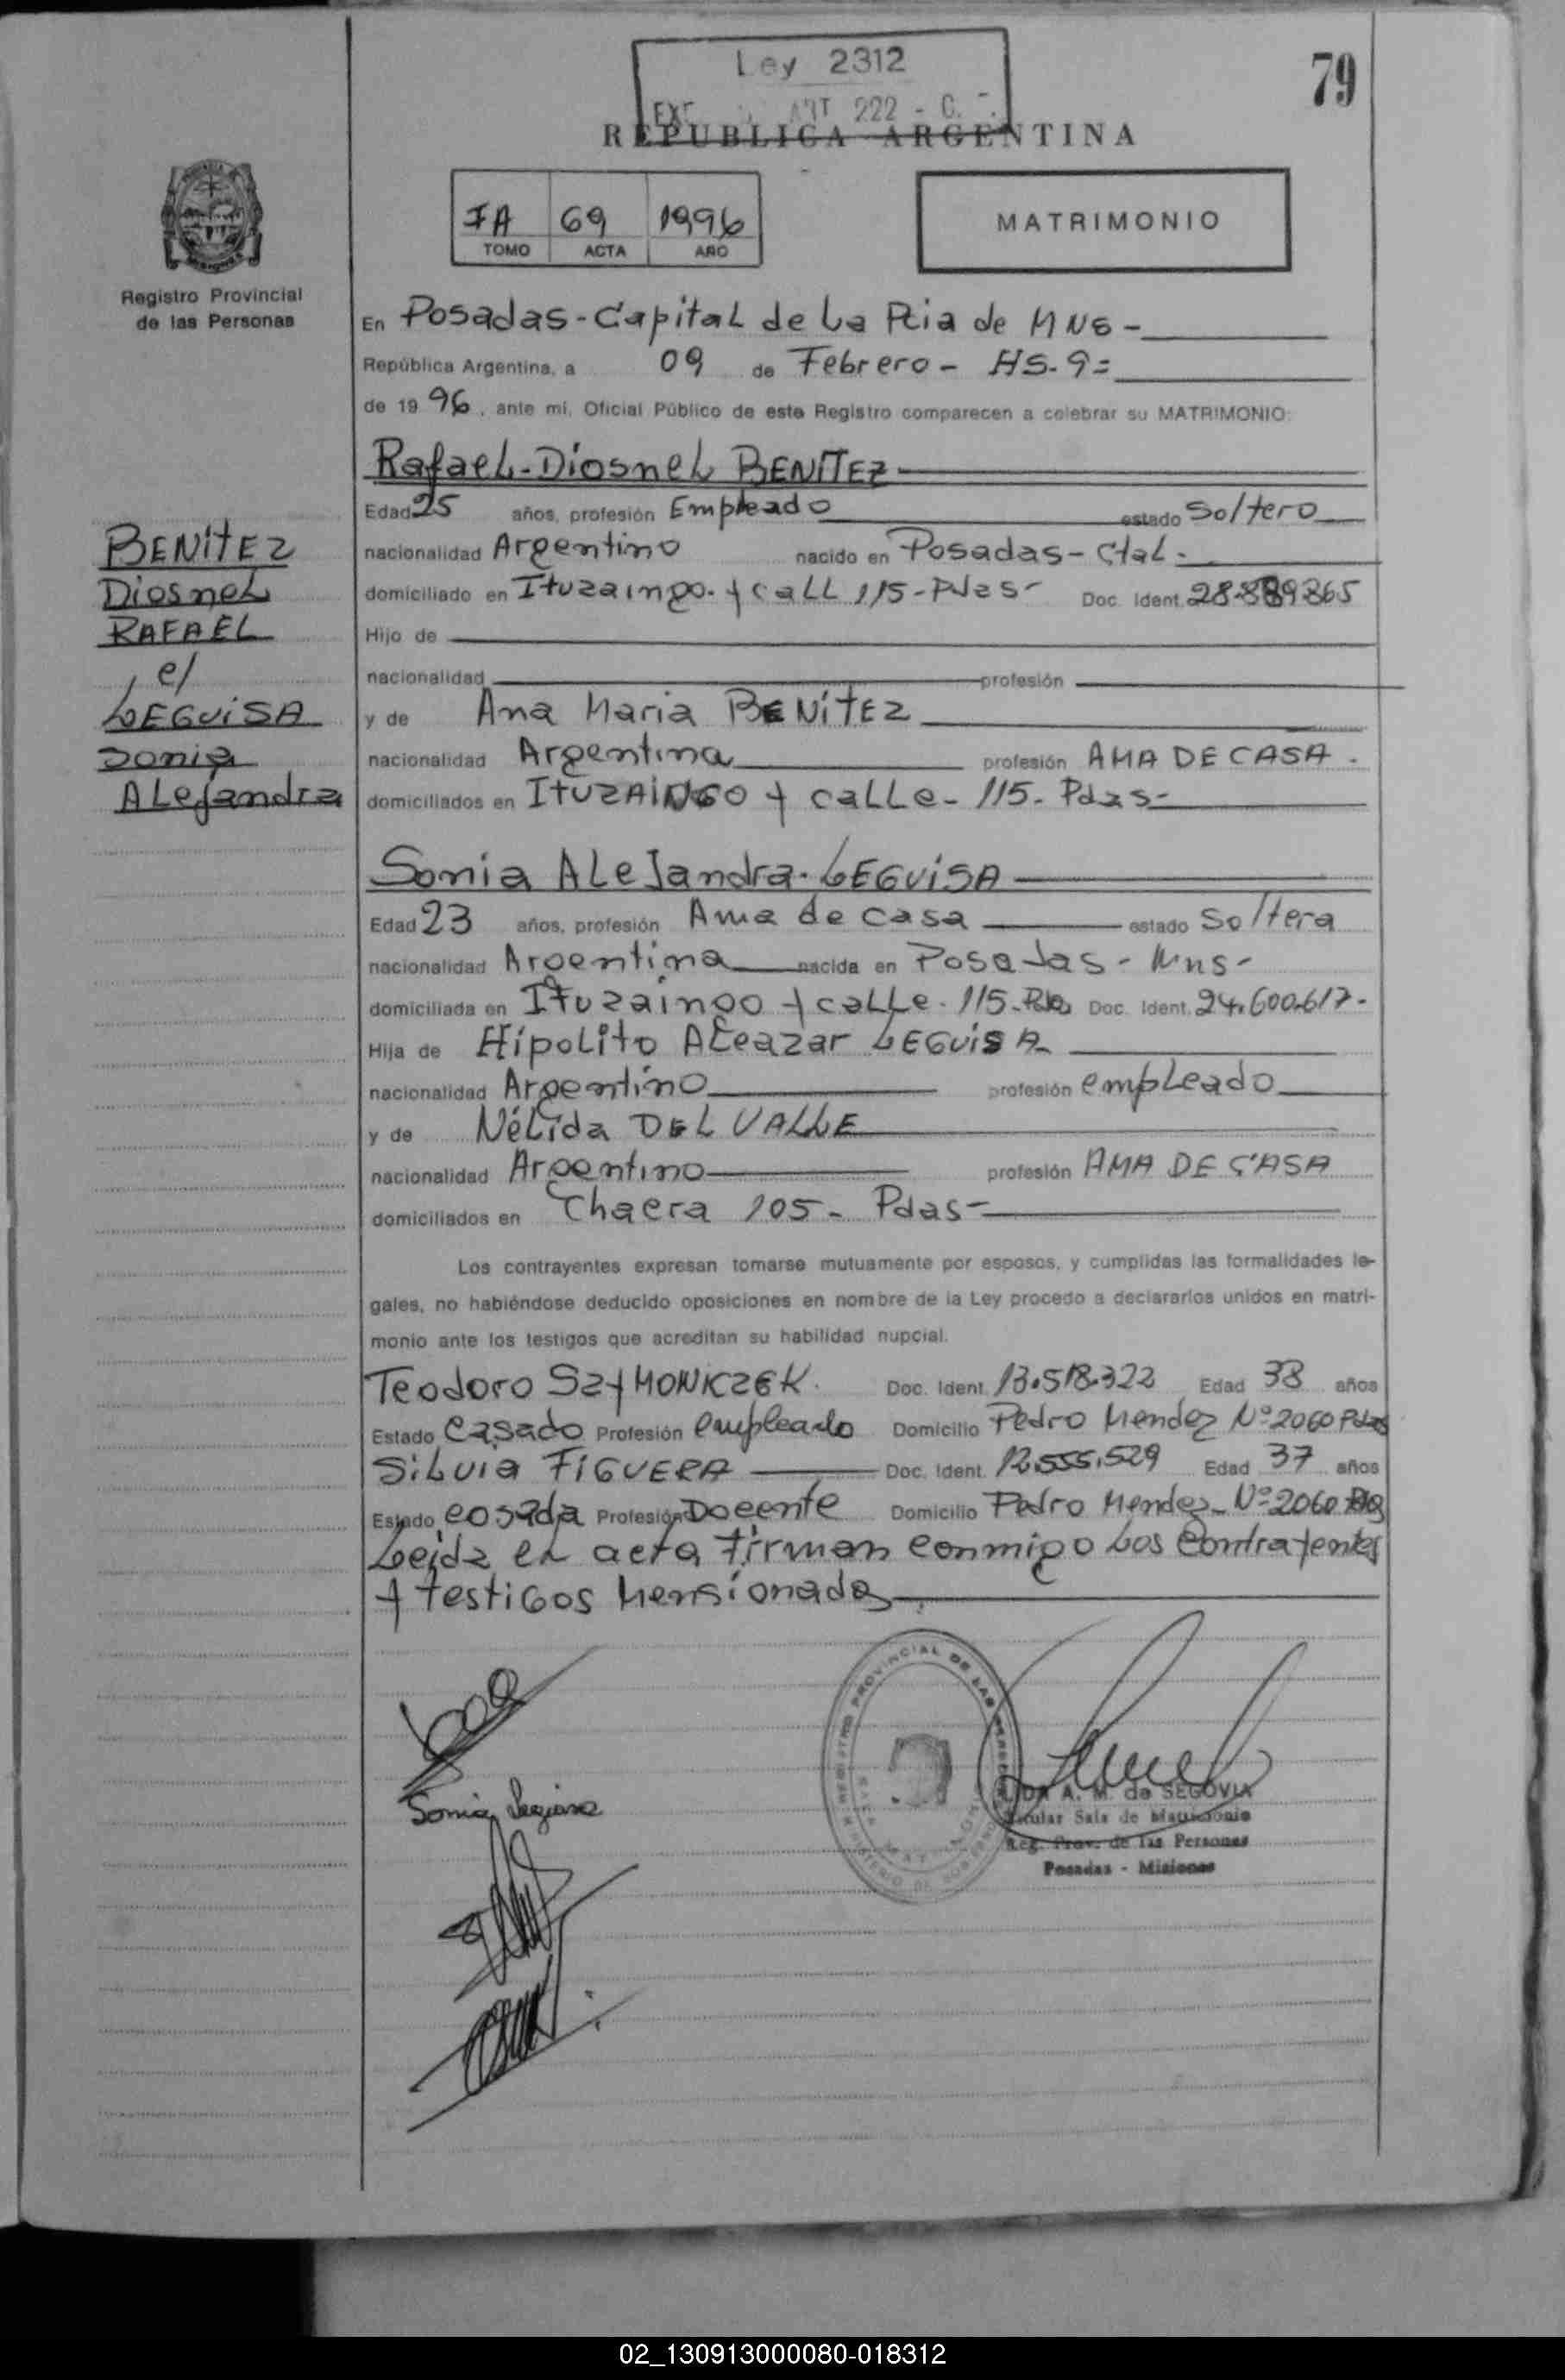 Ley 2312
ART 222 - C.
79
REPUBLICA ARGENTINA
IA 69 1996
TOMO ACTA AÑO
MATRIMONIO
Registro Provincial
de las Personas
En Posadas-Capital de La Pcia de MNS-
República Argentina, a 09 de Febrero - HS-9=
de 19 96, ante mí, Oficial Público de este Registro comparecen a celebrar su MATRIMONIO:
Rafael-Diosnel BENITEZ
Edad 25 años, profesión Empleado estado Soltero
nacionalidad Argentino nacido en Posadas-Ctal-
domiciliado en Ituzaingo. y call 115-Pdas- Doc. Ident. 28.889865
Hijo de
nacionalidad profesión
y de Ana Maria BENITEZ
nacionalidad Argentina profesión AMA DE CASA -
domiciliados en ITUZAINGO y calle- 115- Pdas-
BENITEZ
Diosnel
RAFAEL
c/
LEGUISA
Sonia
Alejandra
Sonia Alejandra- LEGUISA
Edad 23 años, profesión Ama de casa estado Soltera
nacionalidad Argentina nacida en Posadas- Mns-
domiciliada en Ituzaingo y calle- 115- Pdas Doc. Ident. 24.600.617-
Hija de Hipolito Aleazar LEGUISA-
nacionalidad Argentino profesión empleado
y de Nélida DEL VALLE
nacionalidad Argentino profesión AMA DE CASA
domiciliados en Chacra 105- Pdas-
Los contrayentes expresan tomarse mutuamente por esposos, y cumplidas las formalidades le-
gales, no habiéndose deducido oposiciones en nombre de la Ley procedo a declararlos unidos en matri-
monio ante los testigos que acreditan su habilidad nupcial.
Teodoro SZYMONKCZEK. Doc. Ident. 13.518.322 Edad 38 años
Estado Casado Profesión empleado Domicilio Pedro Mendez Nº 2060 Pdas
Silvia FIGUERA Doc. Ident. 12.555.529 Edad 37 años
Estado casada Profesión Docente Domicilio Pedro Mendez- Nº 2060
Leida el acta firman conmigo Los Contrayentes
y testigos Mensionados
REGISTRO PROVINCIAL DE LAS PERSONAS
MINISTERIO DE GOBIERNO
Sonia Leguisa
LIDA A. M. de SEGOVIA
Titular Sala de Matrimonio
Reg. Prov. de las Personas
Posadas - Misiones
02_130913000080-018312